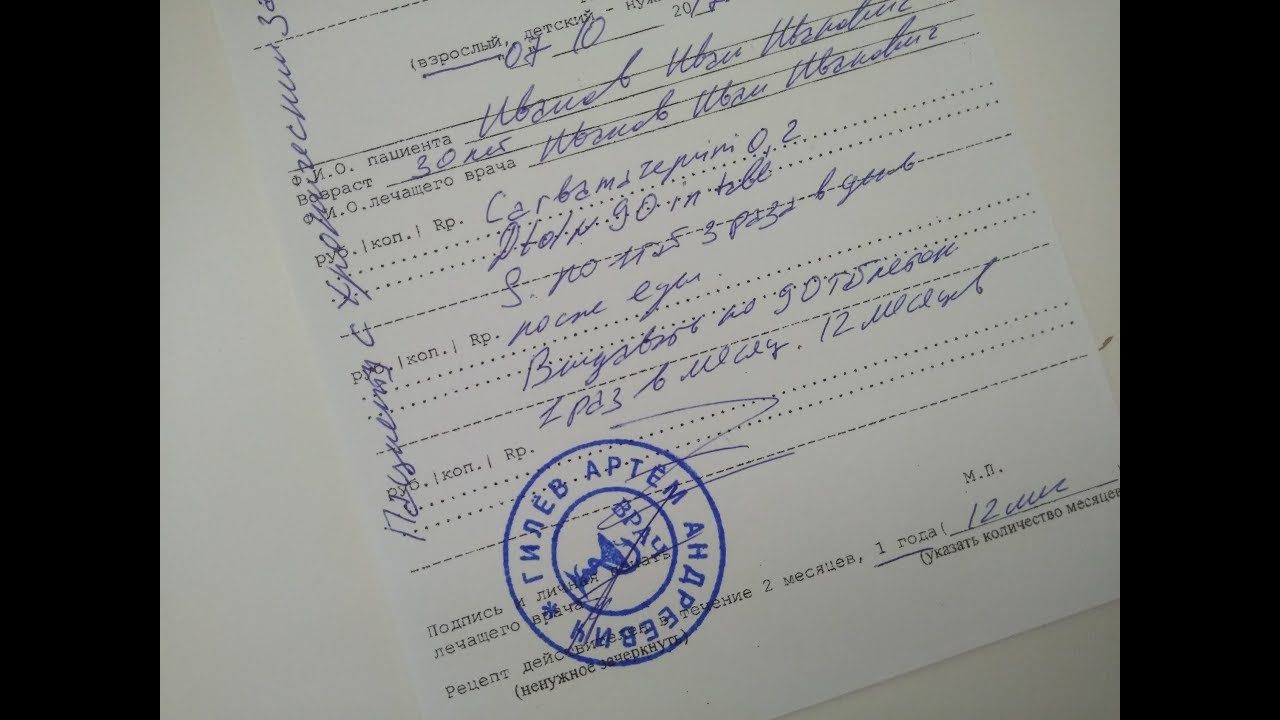 (взрослый, детский - нуж
07 10 20
Ф.И.О. пациента Иванов Иван Иванович
Возраст 30 лет
Ф.И.О. лечащего врача Иванов Иван Иванович
руб.|коп.| Rp. Carbamazepini 0,2
Dtd N 90 in tabl
S. по 1 таб 3 раза в день
руб.|коп.| Rp. после еды
Выдавать по 90 таблеток
1 раз в месяц. 12 месяцев
руб.|коп.| Rp.
М.П.
Подпись и личная печать
лечащего врача
Рецепт действителен в течение 2 месяцев, 1 года (12 мес
(ненужное зачеркнуть)
(указать количество месяцев
Пациенту с хроническим за
* ГИЛЁВ АРТЁМ АНДРЕЕВИЧ
ВРАЧ